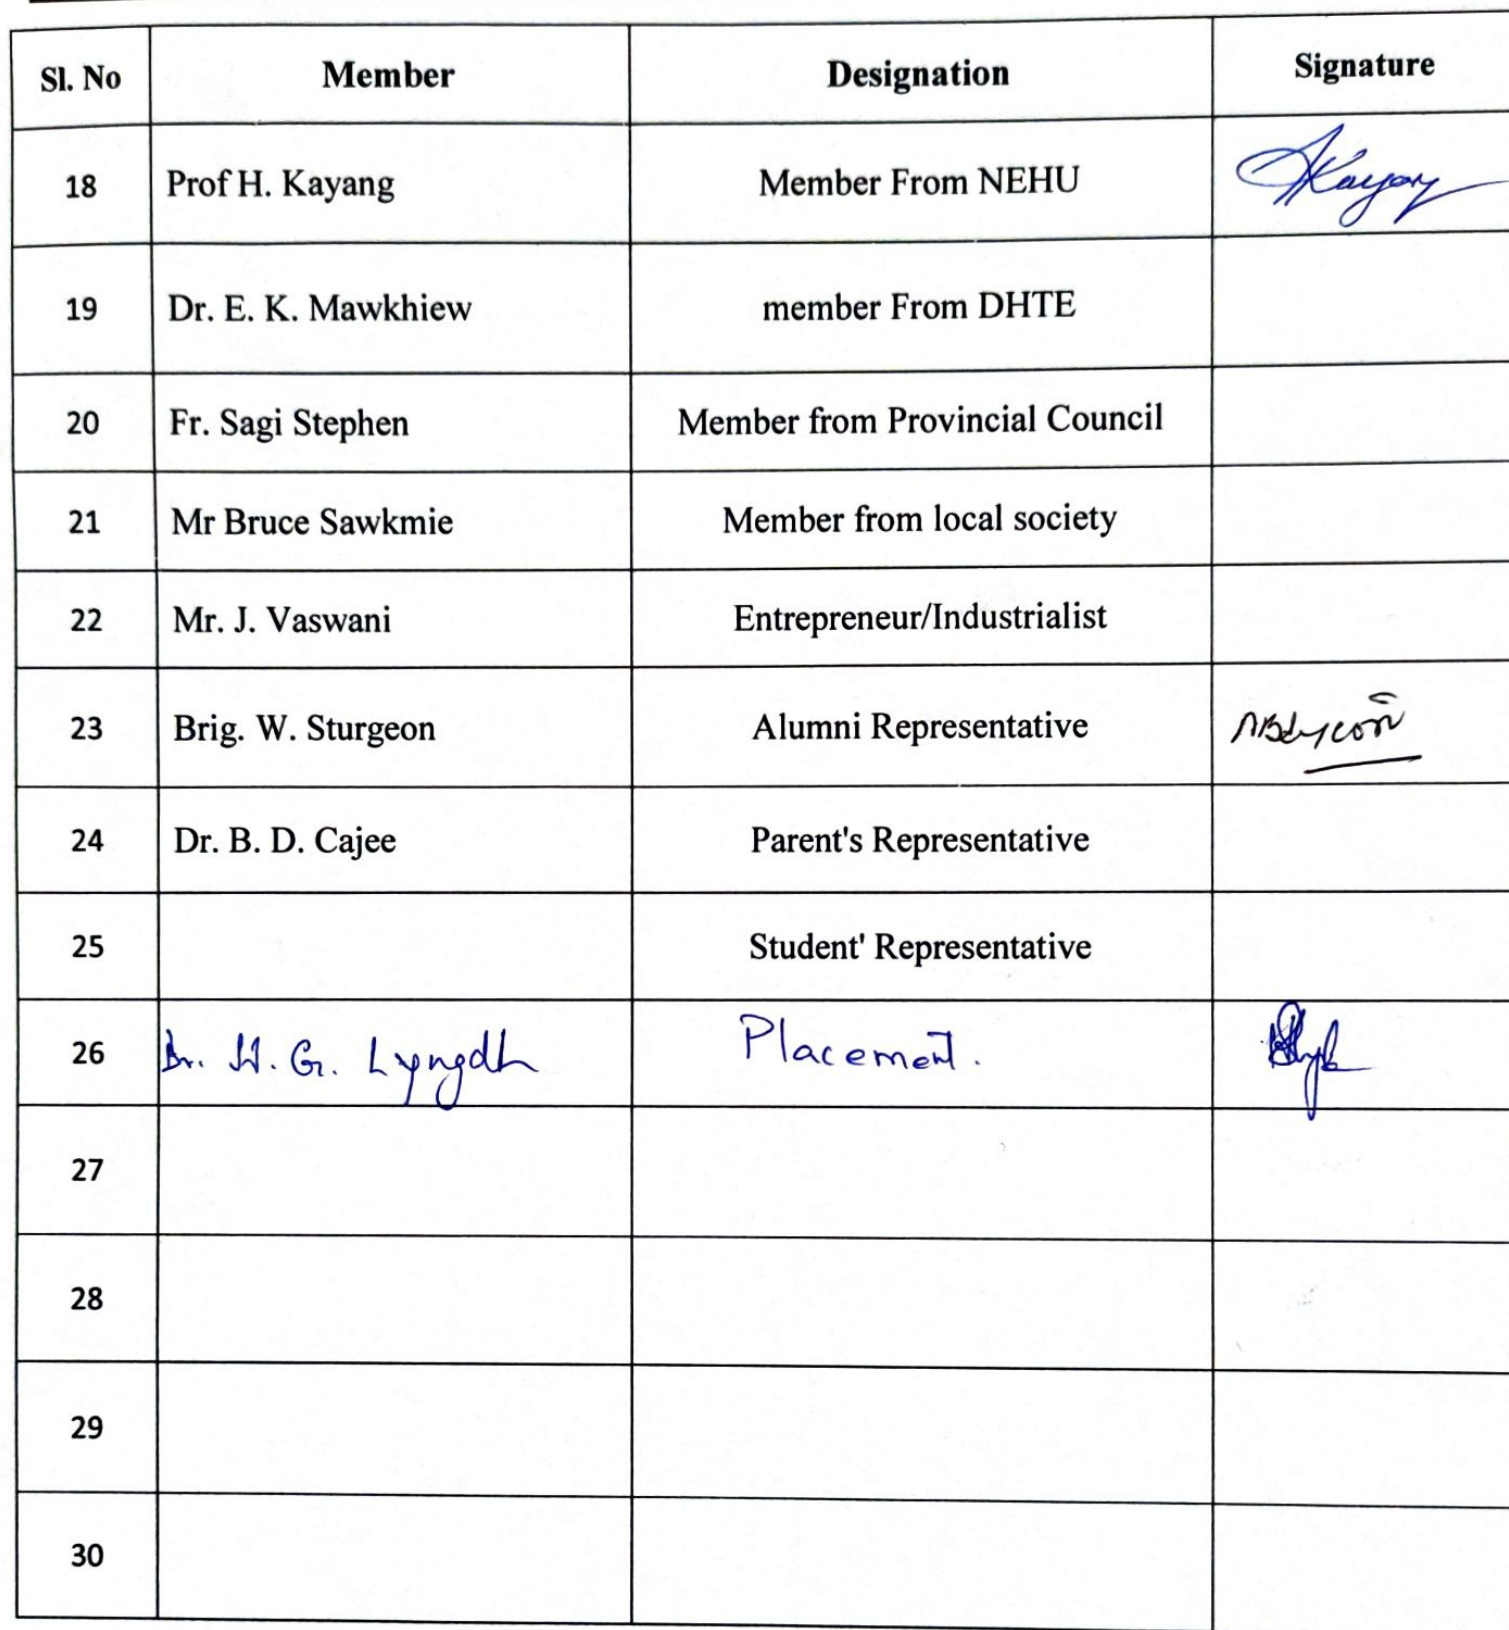 Sl. No Member Designation Signature
18 Prof H. Kayang Member From NEHU Kayang
19 Dr. E. K. Mawkhiew member From DHTE
20 Fr. Sagi Stephen Member from Provincial Council
21 Mr Bruce Sawkmie Member from local society
22 Mr. J. Vaswani Entrepreneur/Industrialist
23 Brig. W. Sturgeon Alumni Representative
24 Dr. B. D. Cajee Parent's Representative
25 Student' Representative
26 Dr. H. G. Lyngdh Placement.
27
28
29
30